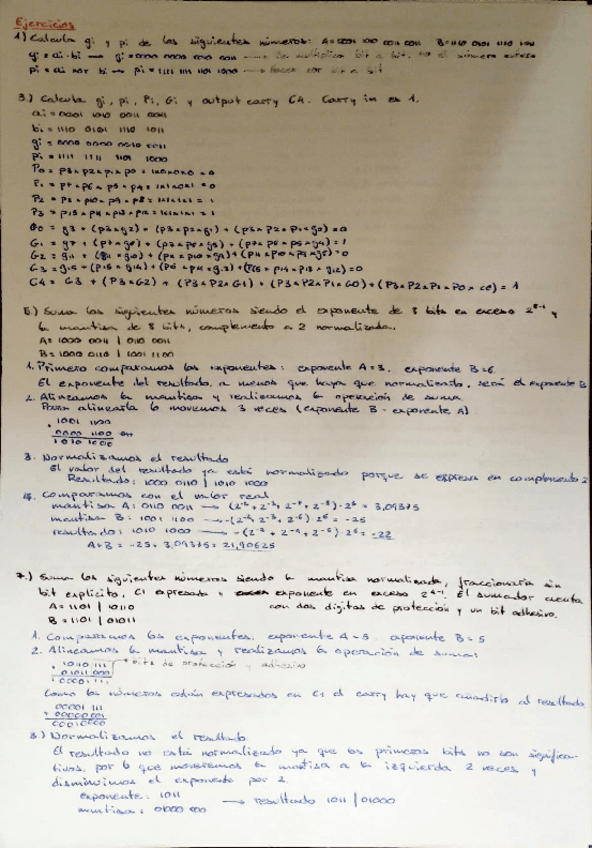 Ejercicios
1) Calcula gi y pi de los siguientes números: A=0001 1010 0011 0011 B=1110 0101 1110 1011
gi = ai · bi → gi = 0000 0000 0010 0011 → Se multiplica bit a bit, no el número entero
pi = ai xor bi → pi = 1111 1111 1101 1000 → Hacer xor bit a bit
3.) Calcula gi, pi, Pi, Gi y output carry C4. Carry in es 1.
ai = 0001 1010 0011 0011
bi = 1110 0101 1110 1011
gi = 0000 0000 0010 0011
pi = 1111 1111 1101 1000
P0 = p3 x p2 x p1 x p0 = 1x0x0x0 = 0
P1 = p7 x p6 x p5 x p4 = 1x1x0x1 = 0
= 1x1x1x1 = 1
= 1x1x1x1 = 1
G0 = g3 + (p3 x g2) + (p3 x p2 x g1) + (p3 x p2 x p1 x g0) = 0
= 1
= 0
= 0
C4 = G3 + (P3 x G2) + (P3 x P2 x G1) + (P3 x P2 x P1 x G0) + (P3 x P2 x P1 x P0 x c0) = 1
5) Suma los siguientes números siendo el exponente de 8 bits en exceso y
la mantisa de 8 bits, complemento a 2 normalizada.
A = 1000 0011 | 0110 0011
B = 1000 0110 | 1001 1100
1. Primero comparamos los exponentes: exponente A = 3, exponente B = 6.
El exponente del resultado, a menos que haya que normalizarlo, será el exponente B
2. Alineamos la mantisa y realizamos la operación de suma
Para alinearla lo movemos 3 veces (exponente B - exponente A)
+ 1001 1100
0000 1100
1010 1000
3. Normalizamos el resultado
El valor del resultado ya está normalizado porque se expresa en complemento 2
Resultado: 1000 0110 | 1010 1000
4. Comparamos con el valor real
mantisa A: 0110 0011 → = 3,09375
mantisa B: 1001 1100 → = -25
resultado: 1010 1000 → = -22
A+B = -25 + 3,09375 = 21,90625
7.) Suma los siguientes números siendo la mantisa normalizada, fraccionaria sin
bit explícito, C1 expresado y exponente en exceso El sumador cuenta
con dos dígitos de protección y un bit adhesivo.
A = 1101 | 10110
B = 1101 | 01011
1. Comparamos los exponentes: exponente A = 5 exponente B = 5
2. Alineamos la mantisa y realizamos la operación de suma:
+ 10110 111 → bits de protección y adhesivo
01011 000
00001 111
Como los números están expresados en C1 el carry hay que añadirlo al resultado
00001 111
+ 00000001
00010000
3.) Normalizamos el resultado
El resultado no está normalizado ya que los primeros bits no son significa-
tivos, por lo que moveremos la mantisa a la izquierda 2 veces y
disminuimos el exponente por 2.
exponente: 1011
→ resultado 1011 | 01000
mantisa: 01000 000